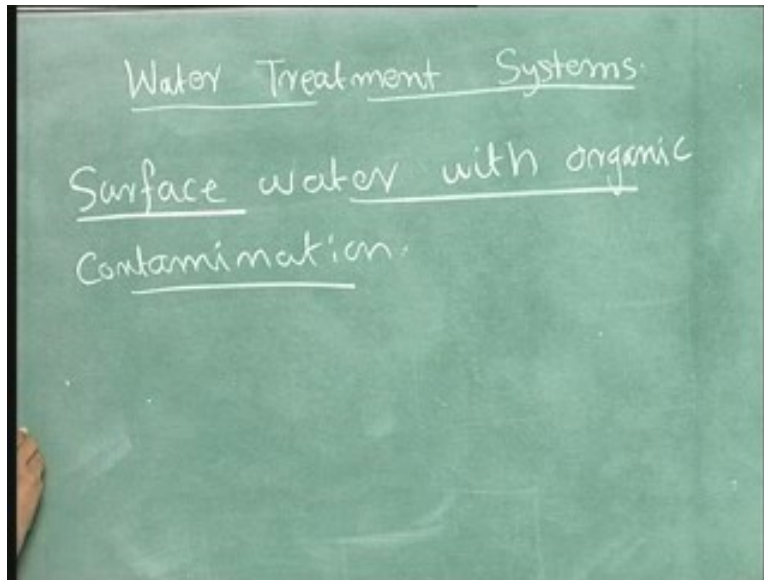 Water Treatment Systems.
Surface water with organic
Contamination.